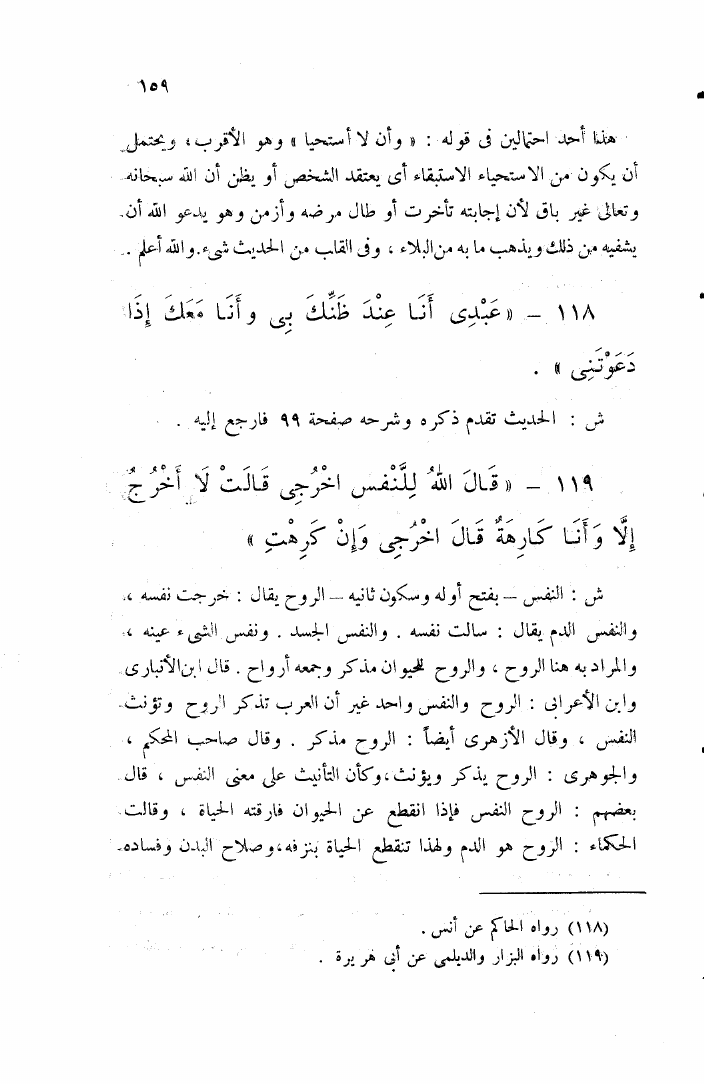 ١٥٩
هذا أحد احتمالين فى قوله : « وأن لا أستحيا » وهو الأقرب ، ويحتمل
أن يكون من الاستحياء الاستبقاء أى يعتقد الشخص أو يظن أن الله سبحانه
وتعالى غير باق لأن إجابته تأخرت أو طال مرضه وأزمن وهو يدعو الله أن
يشفيه من ذلك ويذهب ما به من البلاء ، وفى القلب من الحديث شىء . والله أعلم .
١١٨ – « عَبْدِى أَنَا عِنْدَ ظَنِّكَ بِى وأَنَا مَعَكَ إِذَا
دَعَوْتَنِى » .
ش : الحديث تقدم ذكره وشرحه صفحة ٩٩ فارجع إليه .
١١٩ – « قَالَ اللهُ لِلنَّفْسِ اخْرُجِى قَالَتْ لَا أَخْرُجُ
إِلَّا وَأَنَا كَارِهَةٌ قَالَ اخْرُجِى وَإِنْ كَرِهْتِ »
ش : النفس – بفتح أوله وسكون ثانيه – الروح يقال : خرجت نفسه ،
والنفس الدم يقال : سالت نفسه . والنفس الجسد . ونفس الشىء عينه ،
والمراد به هنا الروح ، والروح للحيوان مذكر وجمعه أرواح . قال ابن الأنبارى
وابن الأعرابى : الروح والنفس واحد غير أن العرب تذكر الروح وتؤنث
النفس ، وقال الأزهرى أيضاً : الروح مذكر . وقال صاحب المحكم ،
والجوهرى : الروح يذكر ويؤنث ، وكأن التأنيث على معنى النفس ، قال
بعضهم : الروح النفس فإذا انقطع عن الحيوان فارقته الحياة ، وقالت
الحكماء : الروح هو الدم ولهذا تنقطع الحياة بنزفه ، وصلاح البدن وفساده
(١١٨) رواه الحاكم عن أنس .
(١١٩) رواه البزار والديلمى عن أبى هريرة .